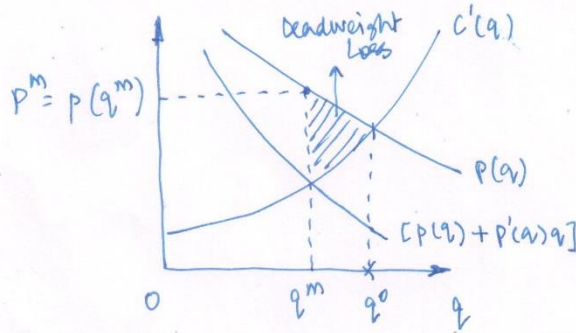 Deadweight
Loss
C'(q)
p^m = p(q^m)
p(q)
[p(q) + p'(q)q]
0
q^m
q^0
q